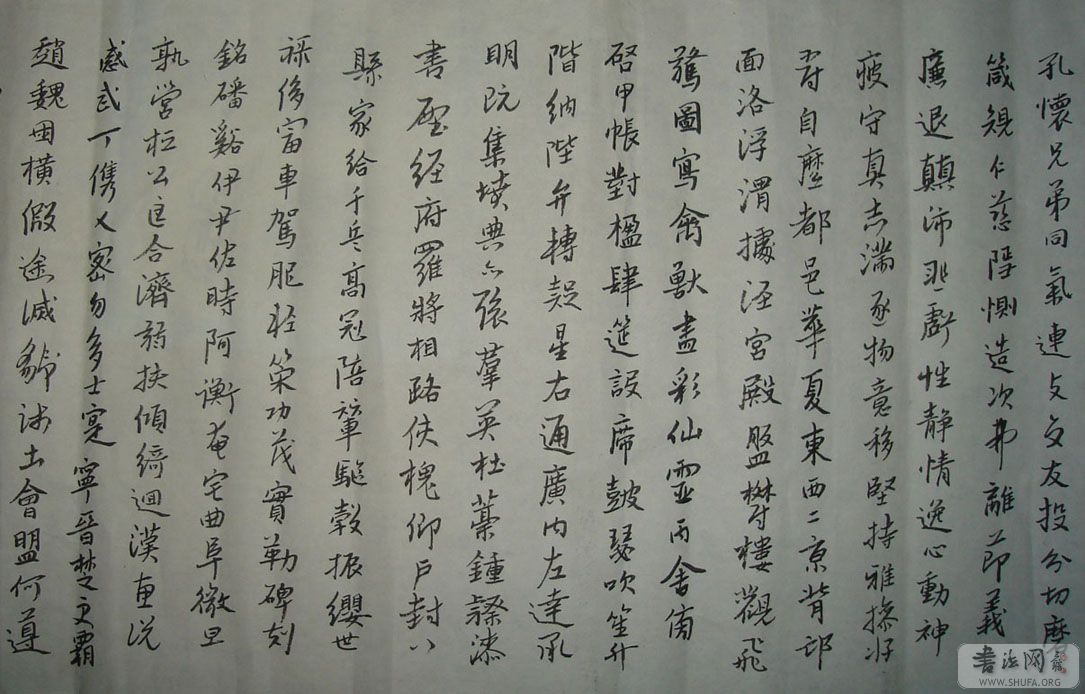 孔懷兄弟同氣連支交友投分切磨
箴規仁慈隱惻造次弗離節義
廉退顛沛匪虧性靜情逸心動神
疲守真志滿逐物意移堅持雅操好
爵自縻都邑華夏東西二京背邙
面洛浮渭據涇宮殿盤欝樓觀飛
驚圖寫禽獸畫彩仙靈丙舍傍
啓甲帳對楹肆筵設席鼓瑟吹笙升
階納陛弁轉疑星右通廣內左達承
明既集墳典亦聚羣英杜藁鍾隸漆
書壁經府羅將相路俠槐卿戶封八
縣家給千兵高冠陪輦驅轂振纓世
祿侈富車駕肥輕策功茂實勒碑刻
銘磻谿伊尹佐時阿衡奄宅曲阜微旦
孰營桓公匡合濟弱扶傾綺迴漢惠說
感武丁儁乂密勿多士寔寧晉楚更霸
趙魏困橫假途滅虢踐土會盟何遵
书法网
WWW.SHUFA.ORG